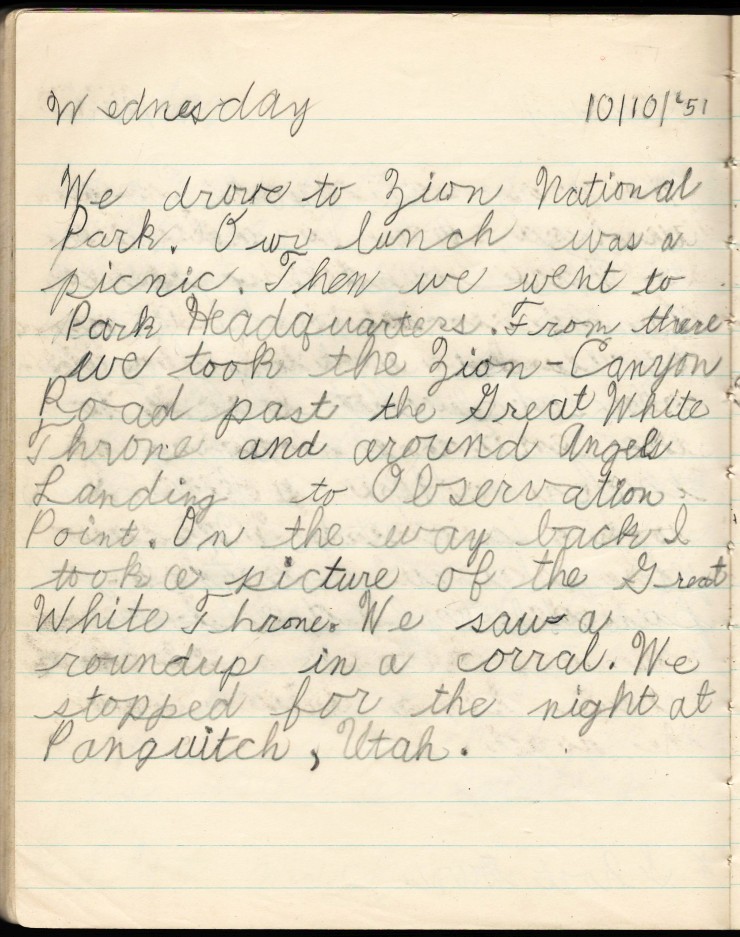 Wednesday 10/10/'51
We drove to Zion National
Park. Our lunch was a
picnic. Then we went to
Park Headquarters. From there
we took the Zion-Canyon
Road past the Great White
Throne and around Angels
Landing to Observation
Point. On the way back I
took a picture of the Great
White Throne. We saw a
roundup in a corral. We
stopped for the night at
Panguitch, Utah.